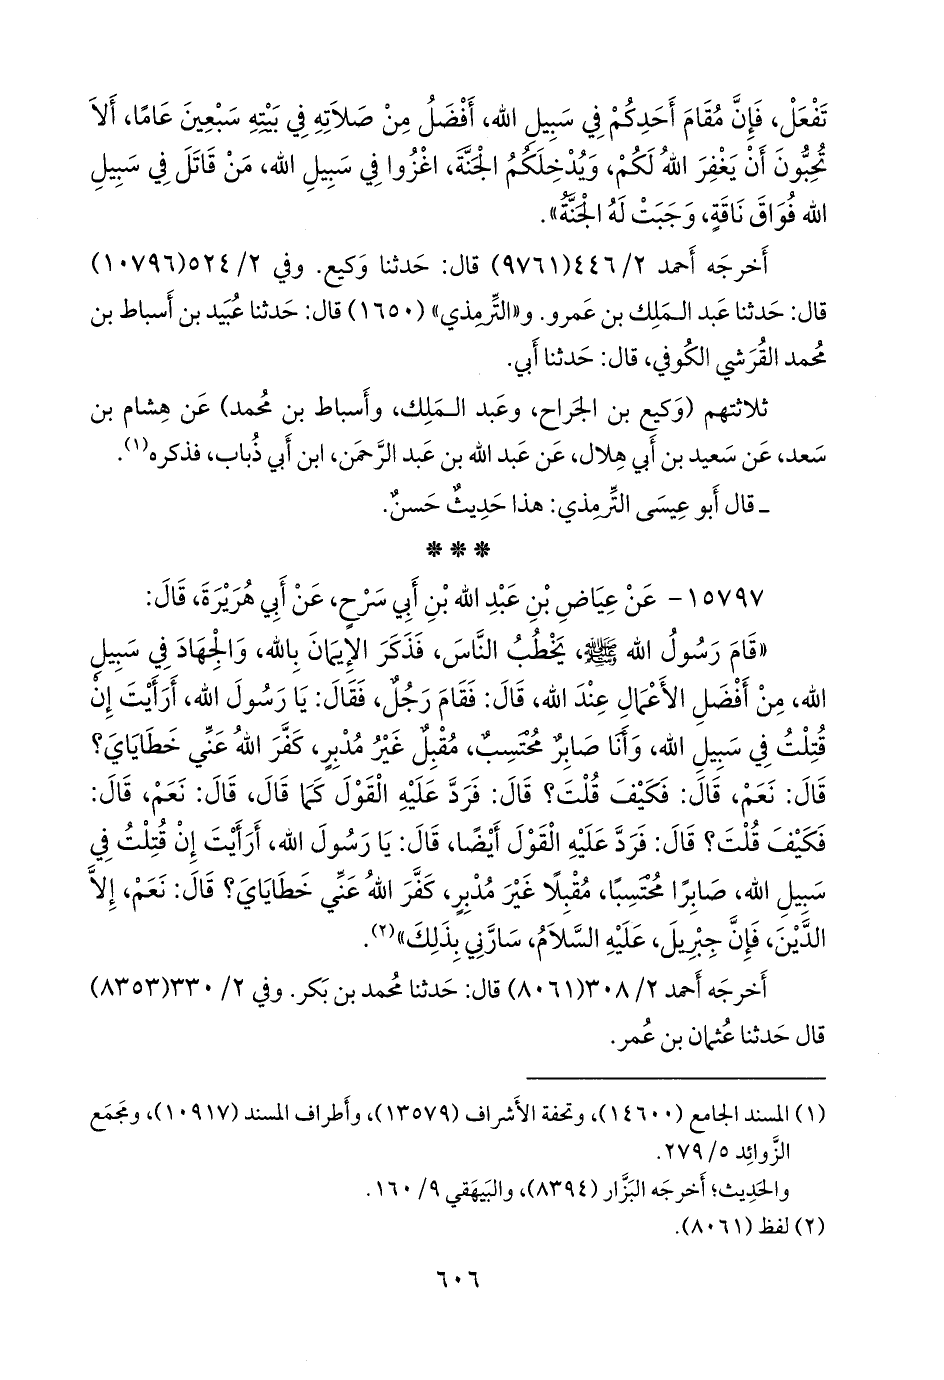 تَفْعَلْ، فَإِنَّ مُقَامَ أَحَدِكُمْ فِي سَبِيلِ الله، أَفْضَلُ مِنْ صَلاَتِهِ فِي بَيْتِهِ سَبْعِينَ عَامًا، أَلاَ
تُحِبُّونَ أَنْ يَغْفِرَ اللهُ لَكُمْ، وَيُدْخِلَكُمُ الْجَنَّةَ، اغْزُوا فِي سَبِيلِ الله، مَنْ قَاتَلَ فِي سَبِيلِ
الله فُوَاقَ نَاقَةٍ، وَجَبَتْ لَهُ الْجَنَّةُ».
أَخرجَه أَحمد ٢/ ٤٤٦(٩٧٦١) قال: حَدثنا وَكيع. وفي ٢/ ٥٢٤(١٠٧٩٦)
قال: حَدثنا عَبد الـمَلِك بن عَمرو. و«التِّرمِذي» (١٦٥٠) قال: حَدثنا عُبَيد بن أَسباط بن
مُحمد القُرَشي الكُوفي، قال: حَدثنا أَبي.
ثلاثتهم (وَكيع بن الجَراح، وعَبد الـمَلِك، وأَسباط بن مُحمد) عَن هِشام بن
سَعد، عَن سَعيد بن أَبي هِلال، عَن عَبد الله بن عَبد الرَّحمَن، ابن أَبي ذُباب، فذكره(١).
ـ قال أَبو عِيسَى التِّرمِذي: هذا حَدِيثٌ حَسنٌ.
* * *
١٥٧٩٧- عَنْ عِيَاضِ بْنِ عَبْدِ الله بْنِ أَبِي سَرْحٍ، عَنْ أَبِي هُرَيْرَةَ، قَالَ:
«قَامَ رَسُولُ الله ﷺ، يَخْطُبُ النَّاسَ، فَذَكَرَ الإِيمَانَ بِالله، وَالْجِهَادَ فِي سَبِيلِ
الله، مِنْ أَفْضَلِ الأَعْمَالِ عِنْدَ الله، قَالَ: فَقَامَ رَجُلٌ، فَقَالَ: يَا رَسُولَ الله، أَرَأَيْتَ إِنْ
قُتِلْتُ فِي سَبِيلِ الله، وَأَنَا صَابِرٌ مُحْتَسِبٌ، مُقْبِلٌ غَيْرُ مُدْبِرٍ، كَفَّرَ اللهُ عَنِّي خَطَايَايَ؟
قَالَ: نَعَمْ، قَالَ: فَكَيْفَ قُلْتَ؟ قَالَ: فَرَدَّ عَلَيْهِ الْقَوْلَ كَمَا قَالَ، قَالَ: نَعَمْ، قَالَ:
فَكَيْفَ قُلْتَ؟ قَالَ: فَرَدَّ عَلَيْهِ الْقَوْلَ أَيْضًا، قَالَ: يَا رَسُولَ الله، أَرَأَيْتَ إِنْ قُتِلْتُ فِي
سَبِيلِ الله، صَابِرًا مُحْتَسِبًا، مُقْبِلًا غَيْرَ مُدْبِرٍ، كَفَّرَ اللهُ عَنِّي خَطَايَايَ؟ قَالَ: نَعَمْ، إِلاَّ
الدَّيْنَ، فَإِنَّ جِبْرِيلَ، عَلَيْهِ السَّلاَمُ، سَارَّنِي بِذَلِكَ»(٢).
أَخرجَه أَحمد ٢/ ٣٠٨(٨٠٦١) قال: حَدثنا مُحمد بن بَكر. وفي ٢/ ٣٣٠(٨٣٥٣)
قال حَدثنا عُثمان بن عُمر.
(١) المسند الجامع (١٤٦٠٠)، وتحفة الأَشراف (١٣٥٧٩)، وأَطراف المسند (١٠٩١٧)، ومَجمَع
الزَّوائِد ٥/ ٢٧٩.
والحَدِيث؛ أَخرجَه البَزَّار (٨٣٩٤)، والبَيهَقي ٩/ ١٦٠.
(٢) لفظ (٨٠٦١).
٦٠٦